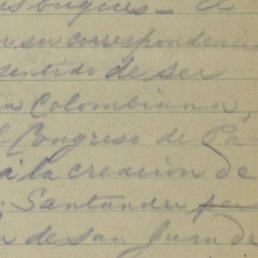 buques - A
en su correspondencia
sentido de ser
Colombiana,
Congreso de Pa-
á la creación de
Santander
de San Juan de